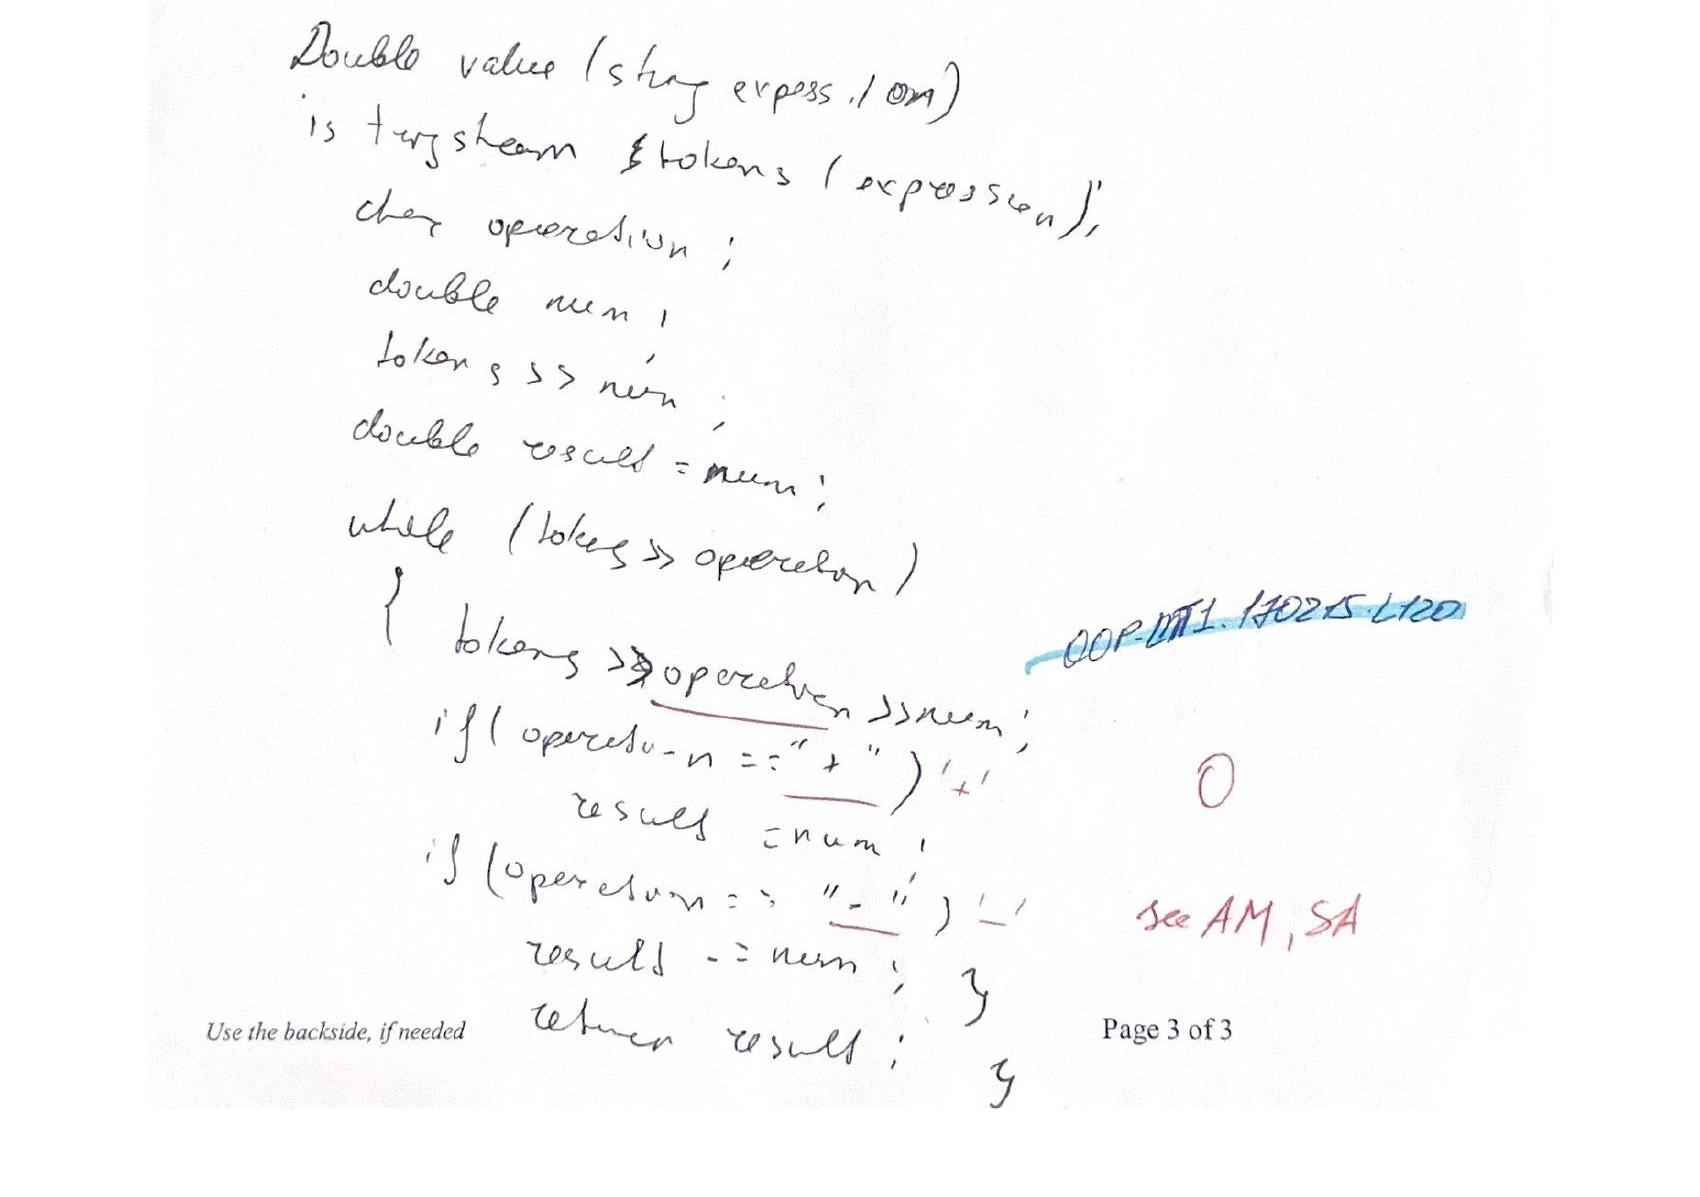 Double value (string express.ion)
istringstream tokens (expression);
char operation;
double num;
tokens >> num;
double result = num;
while (tokens >> operation)
{
tokens >> operation >> num;
if( operation == "+" ) '+'
result = num;
if (operation == "-" ) '-'
result -= num; }
return result;
}
OOP-MT1.170215.L120
0
see AM, SA
Use the backside, if needed
Page 3 of 3